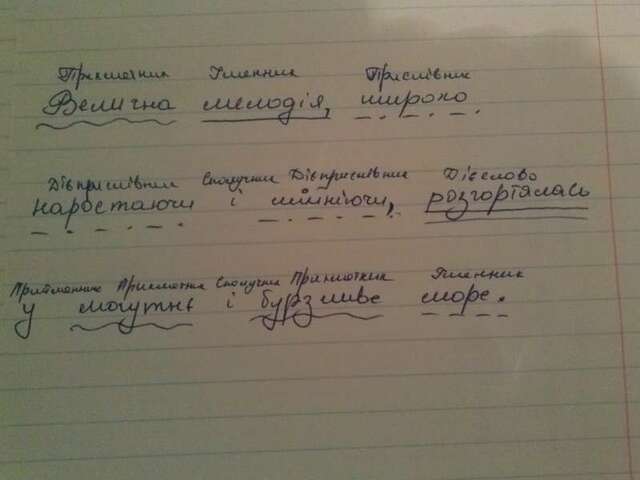 Прикметник Іменник Прислівник
Велична мелодія, широко
Дієприслівник Сполучник Дієприслівник Дієслово
наростаючи і міцніючи, розгорталась
Прийменник Прикметник Сполучник Прикметник Іменник
у могутнє і бурхливе море.